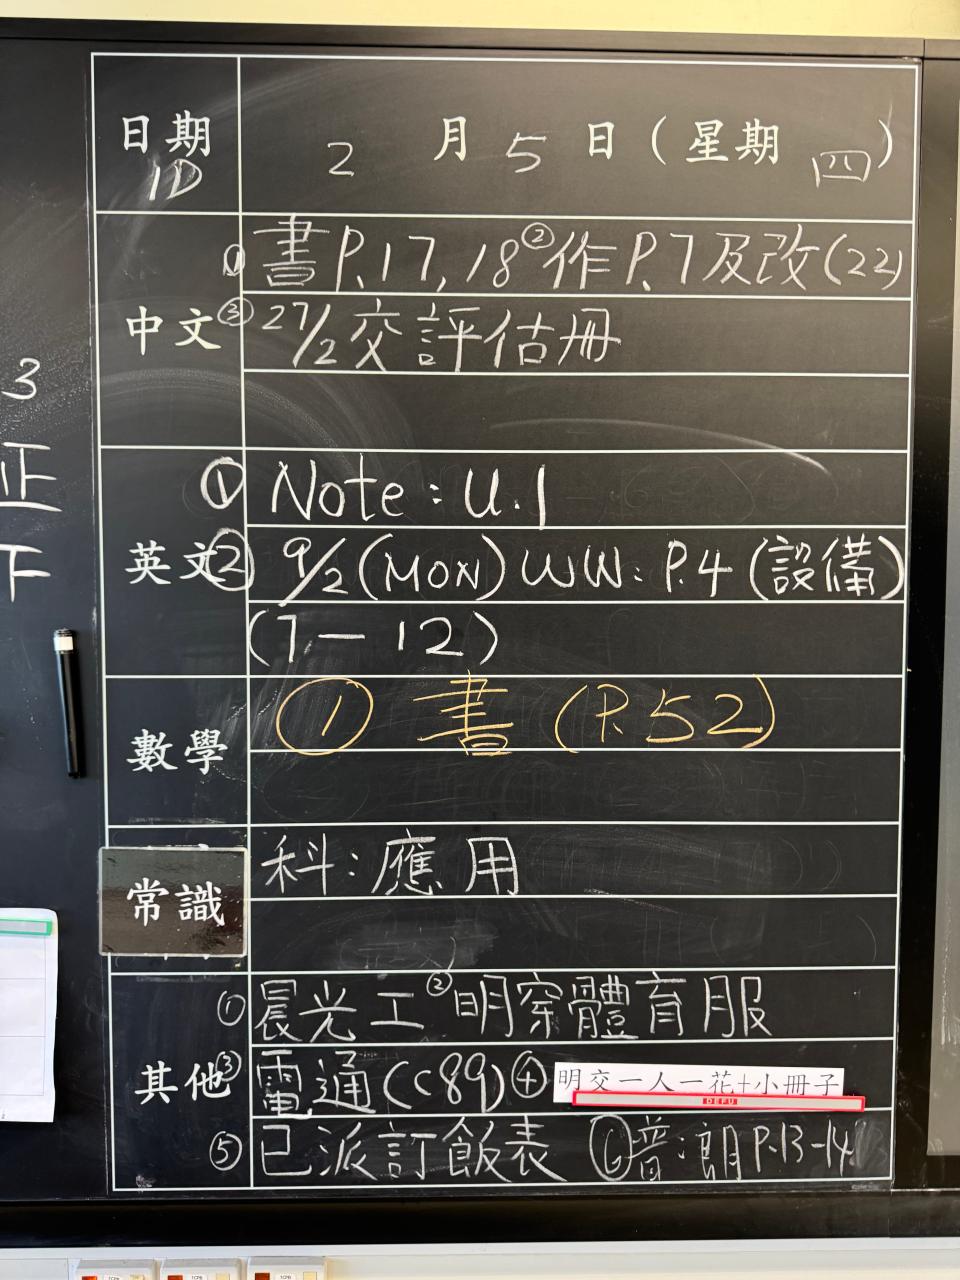 日期 2 月 5 日 ( 星期 四 )
1D
① 書 P.17, 18 ② 作 P.7 及改 (22)
中文 ③ 27/2 交評估冊
① Note : U.1
英文 ② 9/2 (MON) WW: P.4 (設備)
(7-12)
數學 ① 書 (P.52)
常識 科: 應用
① 晨光工 ② 明穿體育服
其他 ③ 電通 (C89) ④ 明交一人一花+小冊子
DEFU
⑤ 已派訂飯表 ⑥ 普: 朗 P.13-14
3
正
下